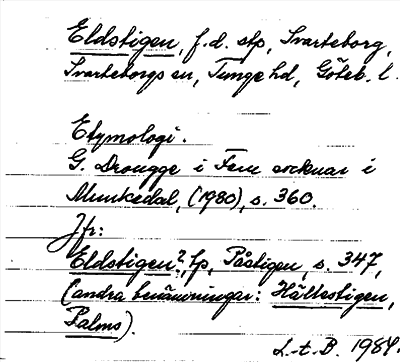 Eldstigen, f.d. stp, Svarteborg,
Svarteborgs sn, Tunge hd, Göteb. l.
Etymologi.
G. Drougge i Fem socknar i
Munkedal, (1980), s. 360.
Jfr:
Eldstigen?, lp, Påstigen, s. 347,
(andra benämningar: Hällestigen,
Palms).
L.t.B. 1984.